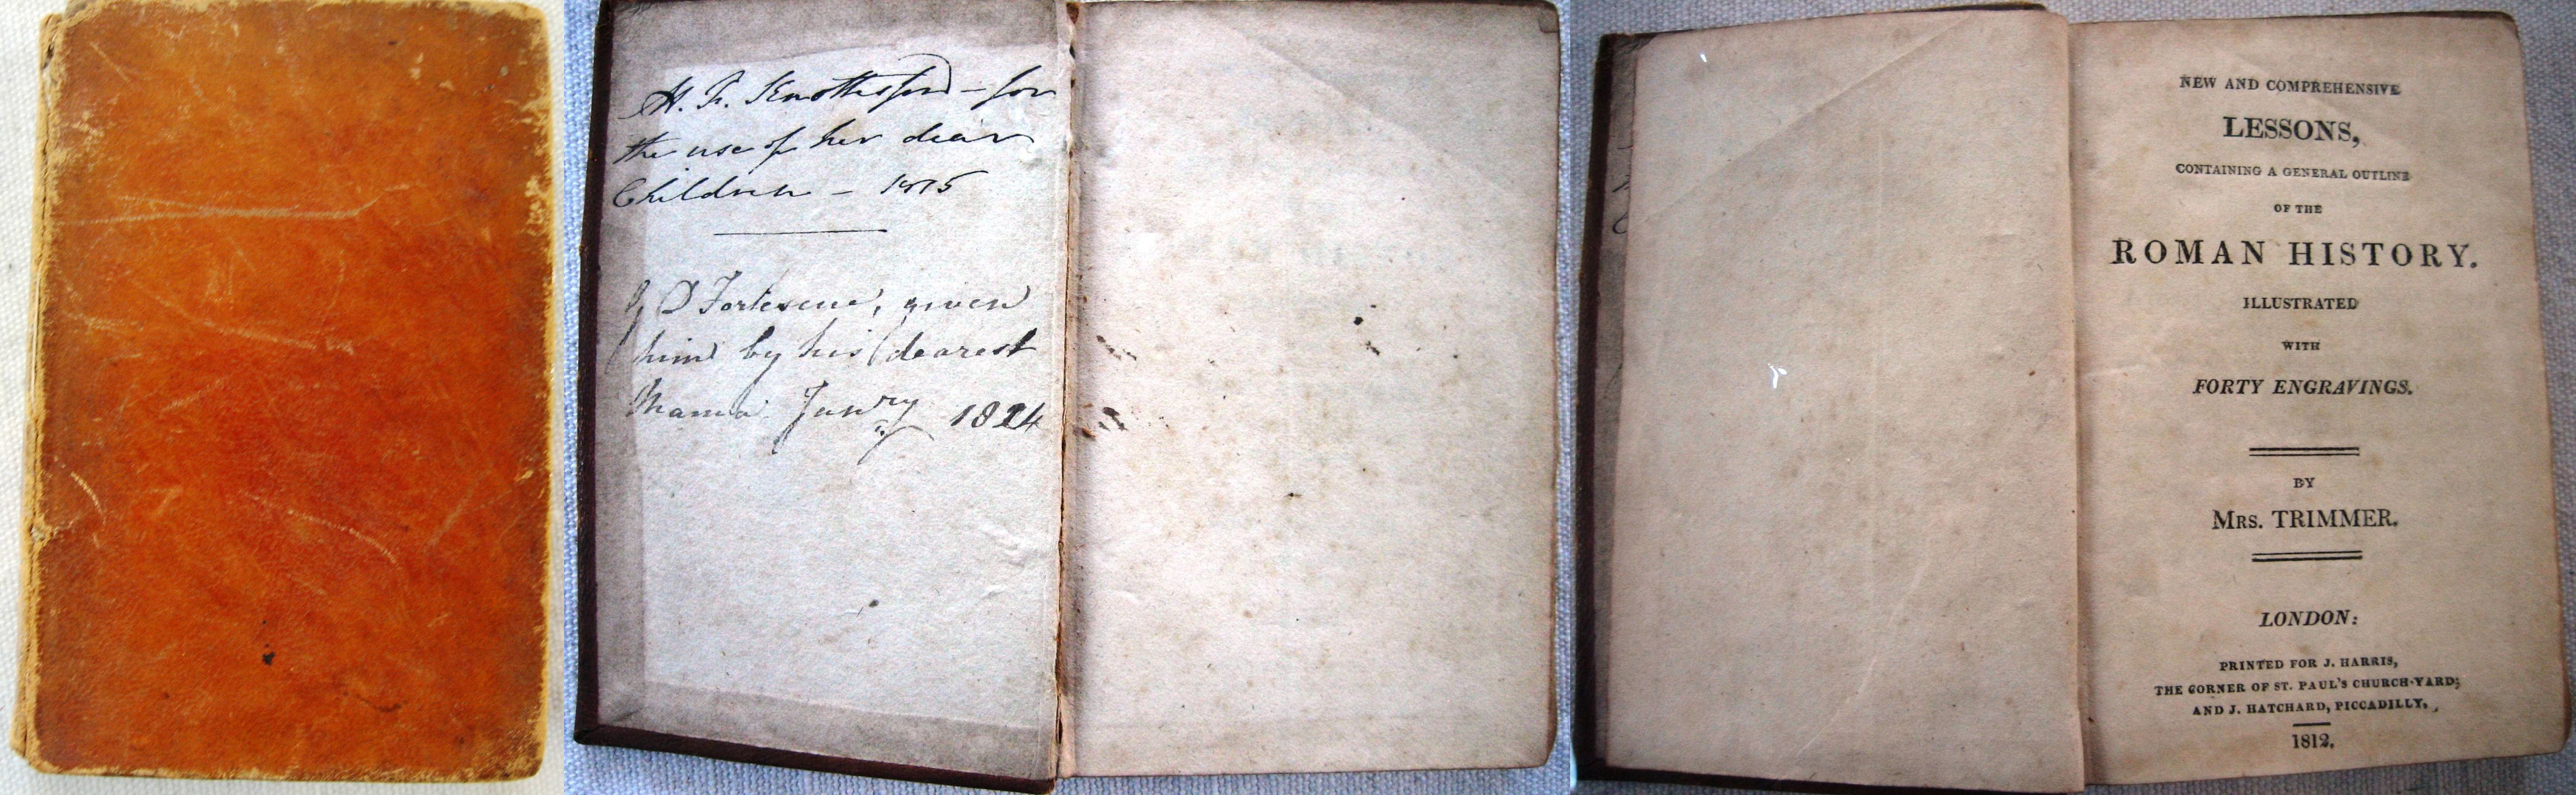 H. F. Knottesford – for
the use of her dear
Children – 1815
J D Fortescue, given
him by his dearest
Mama Janry 1824
NEW AND COMPREHENSIVE
LESSONS,
CONTAINING A GENERAL OUTLINE
OF THE
ROMAN HISTORY.
ILLUSTRATED
WITH
FORTY ENGRAVINGS.
BY
MRS. TRIMMER.
LONDON:
PRINTED FOR J. HARRIS,
THE CORNER OF ST. PAUL'S CHURCH-YARD;
AND J. HATCHARD, PICCADILLY.
1812.